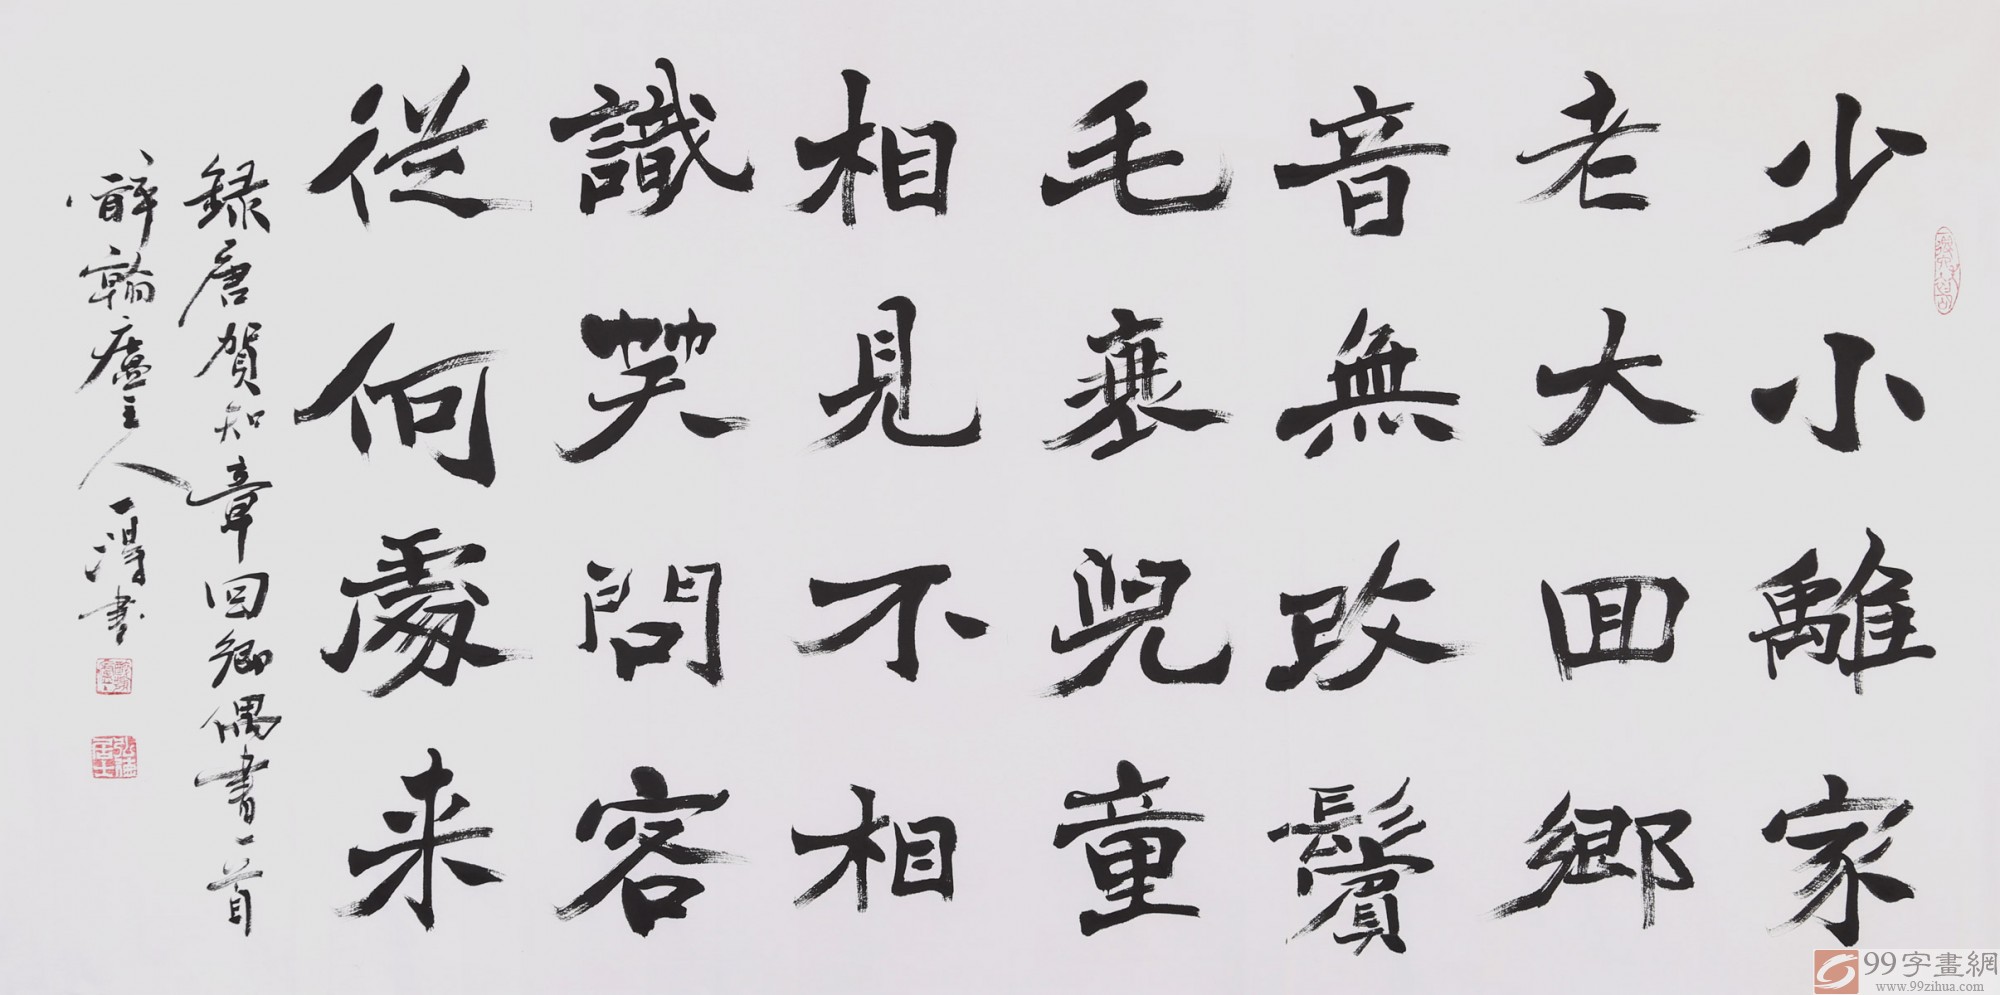 少小離家
老大回鄉
音無改鬢
毛衰兒童
相見不相
識笑問客
從何處来
録唐賀知章回鄉偶書一首
醉翰廬主人一得書
弘德居士
99字畫網
www.99zihua.com